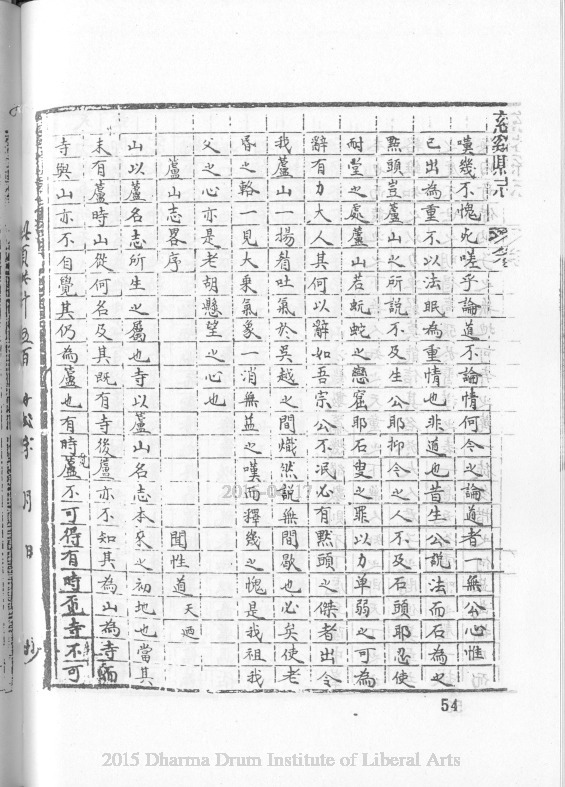 嘆幾不愧死嗟乎論道不論情何令之論道者一無公心惟
已出為重不以法眠為重情也非道也昔生公說法而石為之
㸃頭豈蘆山之所說不及生公耶抑令之人不及石頭耶忍使
耐堂之處蘆山若蚖蛇之戀窟耶石叟之罪以力单弱之可為
辭有力大人其何以辭如吾宗公不泯必有㸃頭之傑者出令
我蘆山一揚眉吐氣於吳越之間熾然說無間歇也必矣使老
昏之輅一見大乘氣象一消無益之嘆而釋幾之愧是我祖我
父之心亦是老胡懸望之心也
蘆山志畧序
聞性道天迺
山以蘆名志所生之屬也寺以蘆山名志本來之初地也當其
未有蘆時山從何名及其既有寺後蘆亦不知其為山為寺而
寺與山亦不自覺其仍為蘆也有時蘆不可得有時並寺不可
月 日
54
2015 Dharma Drum Institute of Liberal Arts